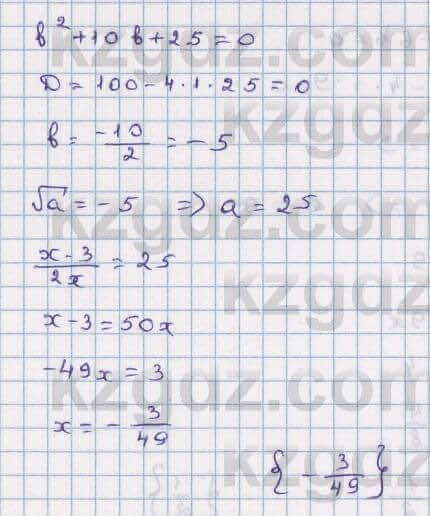 b² + 10b + 25 = 0
D = 100 - 4 · 1 · 25 = 0
b = -10/2 = -5
√a = -5 => a = 25
x - 3/2x = 25
x - 3 = 50x
-49x = 3
x = - 3/49
{ - 3/49 }
kzgdz.com
kzgdz.com
kzgdz.com
kzgdz.com
kzgdz.com